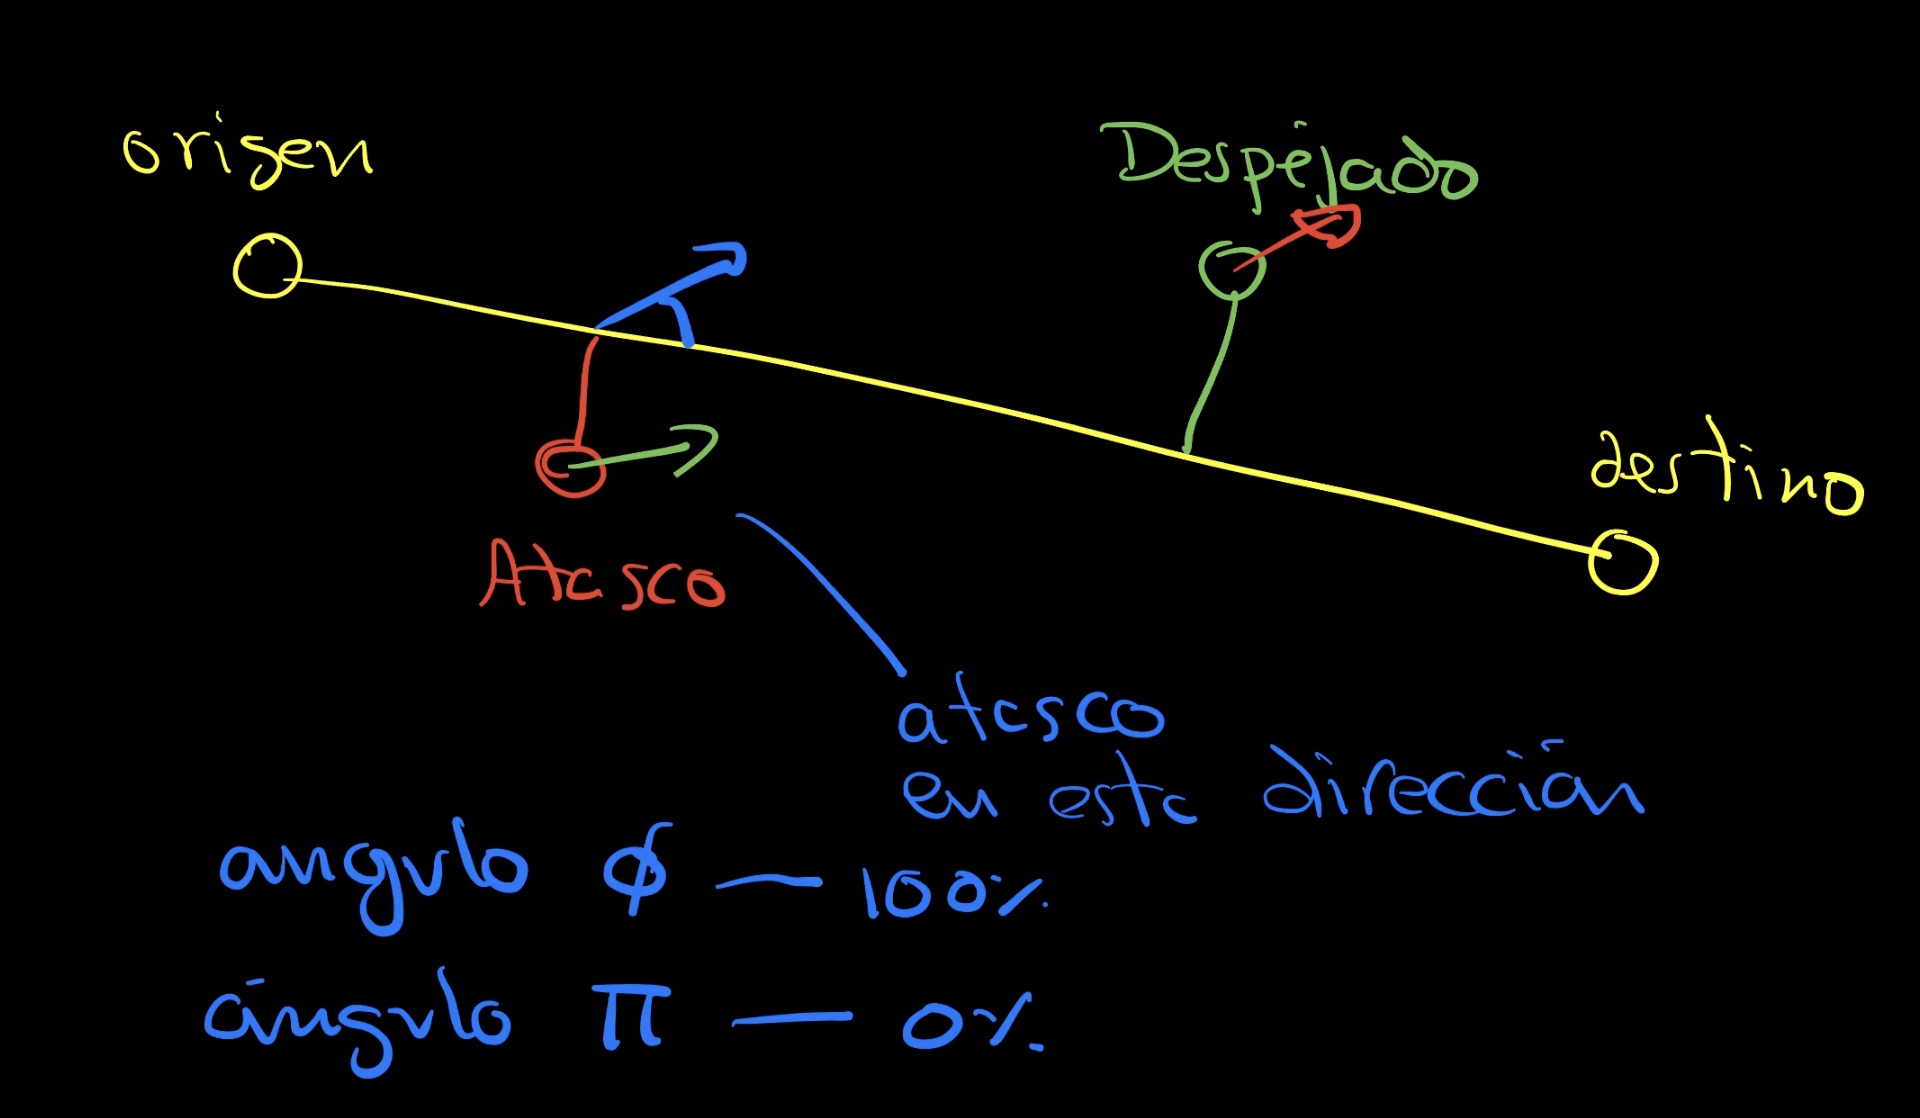 origen
Despejado
destino
Atasco
atasco
en esta dirección
angulo φ — 100%
ángulo π — 0%